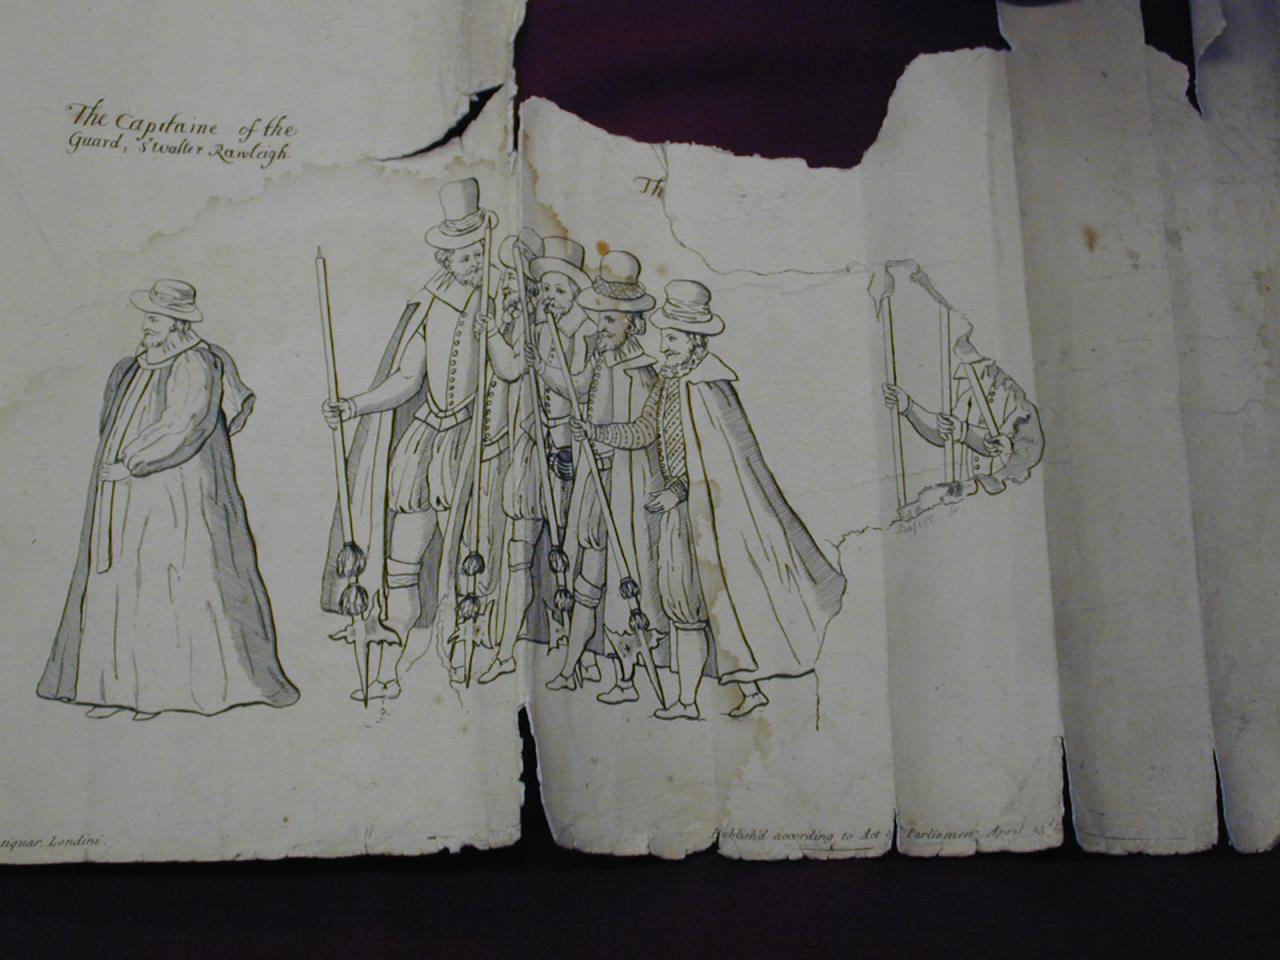 The Capitaine of the
Guard, Sr Walter Rawleigh.
Th
tiquar. Londini.
Publish'd according to Act Parliament April 23d